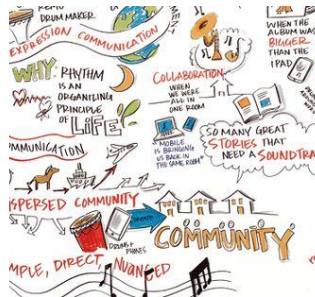 REMO
DRUM MAKER
EXPRESSION COMMUNICATION
WHY: RHYTHM
IS AN
ORGANIZING
PRINCIPLE
OF LIFE
COLLABORATION
WHEN
WE WERE
ALL IN
ONE ROOM
WHEN THE
ALBUM WAS
BIGGER
THAN THE
IPAD
"MOBILE
IS BRINGING
US BACK IN
THE SAME ROOM"
SO MANY GREAT
STORIES THAT
NEED A SOUNDTRA
MMUNICATION
SPERSED COMMUNITY
DRUMS+
PHONES
COMMUNITY
MPLE, DIRECT, NUANCED